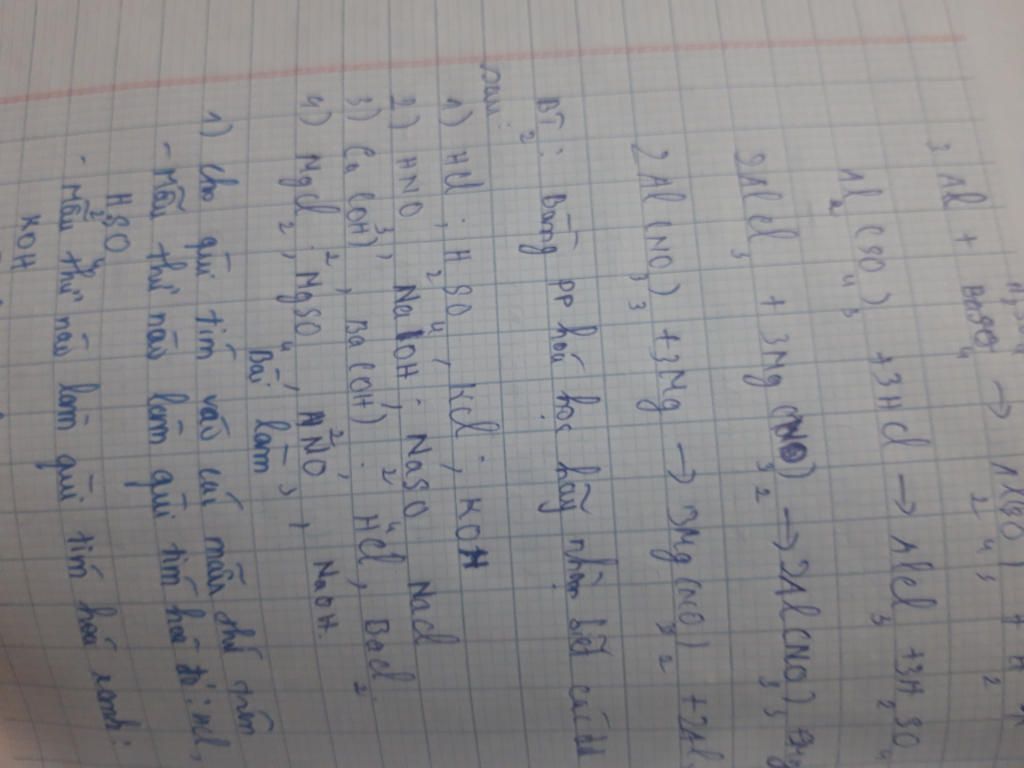 3 Al + H2SO4 → Al2(SO4)3 + H2
Al2(SO4)3 + 3HCl → AlCl3 + 3H2SO4
2AlCl3 + 3Mg(NO3)2 → 2Al(NO3)3
2Al(NO3)3 + 3Mg → 3Mg(NO3)2 + 2Al
BT2: Bằng pp hoá học hãy nhận biết các dd
sau:
1) HCl; H2SO4; KCl; KOH
2) HNO3, NaOH; Na2SO4 NaCl
3) Ca(OH)2, Ba(OH)2. HCl, BaCl2
4) MgCl2; MgSO4, HNO3, NaOH.
Bài làm
1) Cho quì tím vào các mẫu thử trên
- Mẫu thử nào làm quì tím hoá đỏ: HCl,
H2SO4
- Mẫu thử nào làm quì tím hoá xanh:
KOH